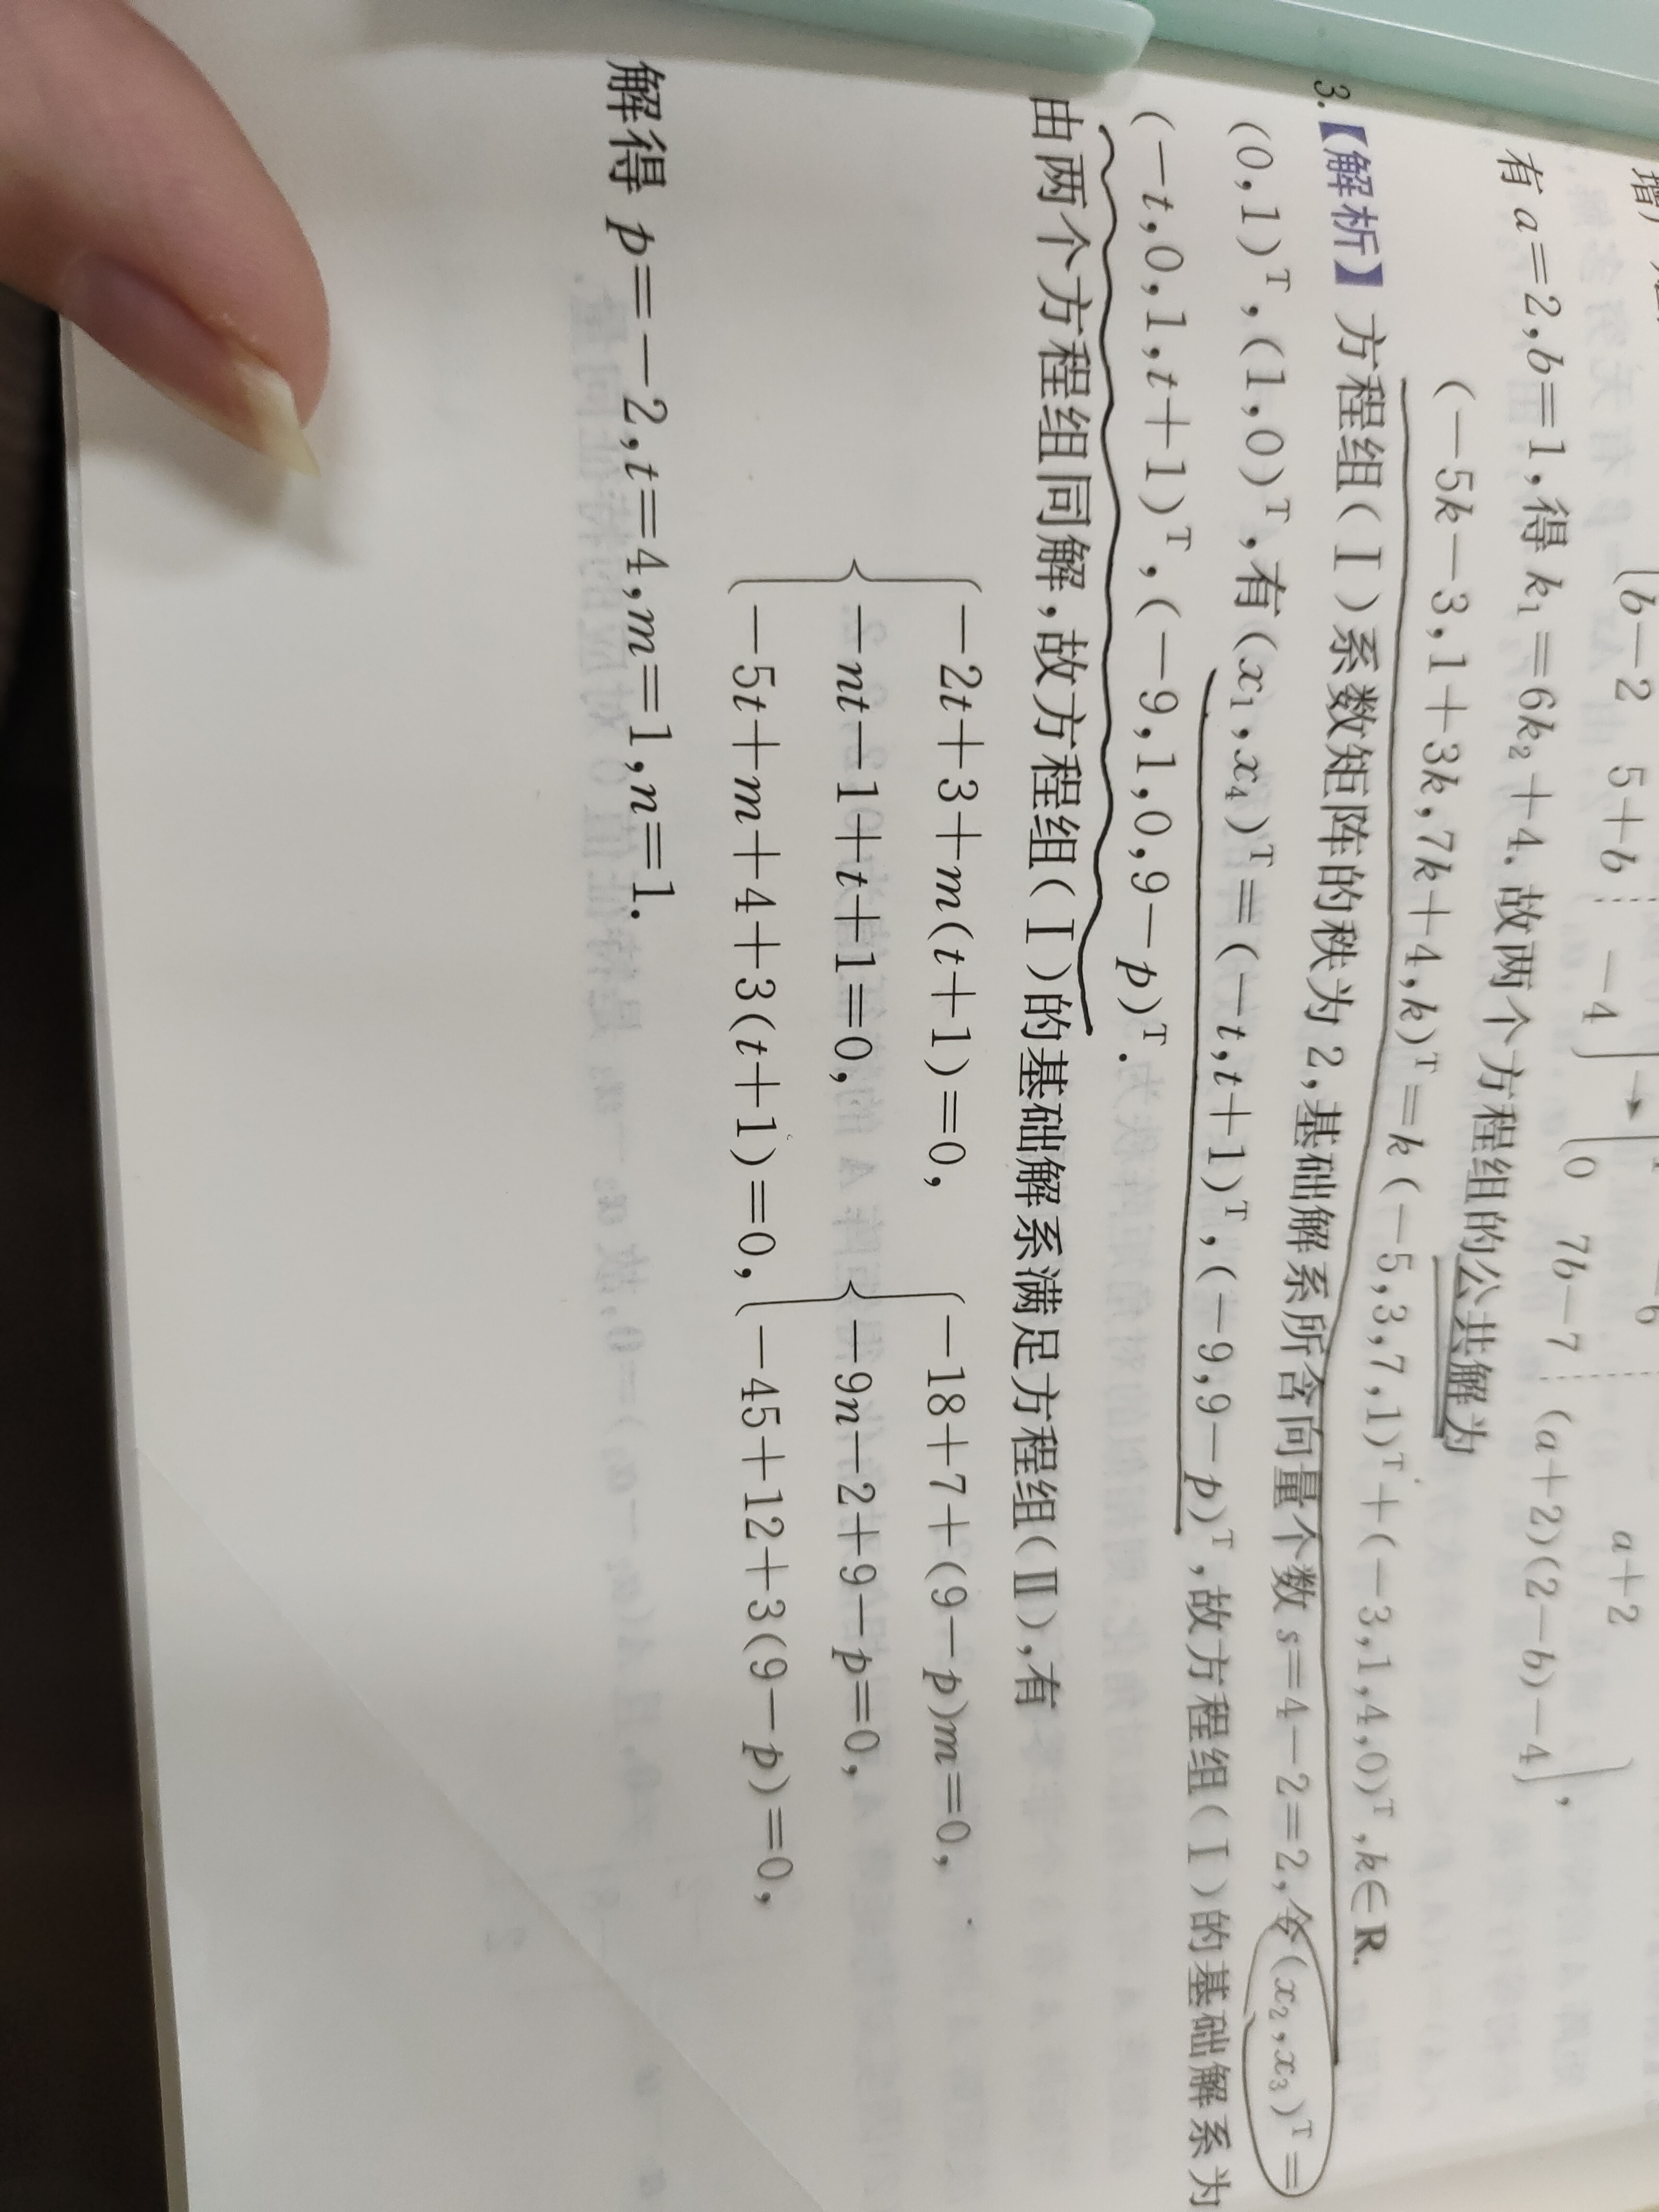 (b-2 5+b -4) → (0 7b-7 (a+2)(2-b)-4),
a+2
有 a=2,b=1,得 k₁=6k₂+4. 故两个方程组的公共解为
(-5k-3,1+3k,7k+4,k)ᵀ=k(-5,3,7,1)ᵀ+(-3,1,4,0)ᵀ,k∈R.
3.【解析】 方程组(Ⅰ)系数矩阵的秩为 2,基础解系所含向量个数 s=4-2=2,令(x₂,x₃)ᵀ=
(0,1)ᵀ,(1,0)ᵀ,有(x₁,x₄)ᵀ=(-t,t+1)ᵀ,(-9,9-p)ᵀ,故方程组(Ⅰ)的基础解系为
(-t,0,1,t+1)ᵀ,(-9,1,0,9-p)ᵀ.
由两个方程组同解,故方程组(Ⅰ)的基础解系满足方程组(Ⅱ),有
{-2t+3+m(t+1)=0, {-18+7+(9-p)m=0,
-nt-1+t+1=0, -9n-2+9-p=0,
-5t+m+4+3(t+1)=0, -45+12+3(9-p)=0,
解得 p=-2,t=4,m=1,n=1.